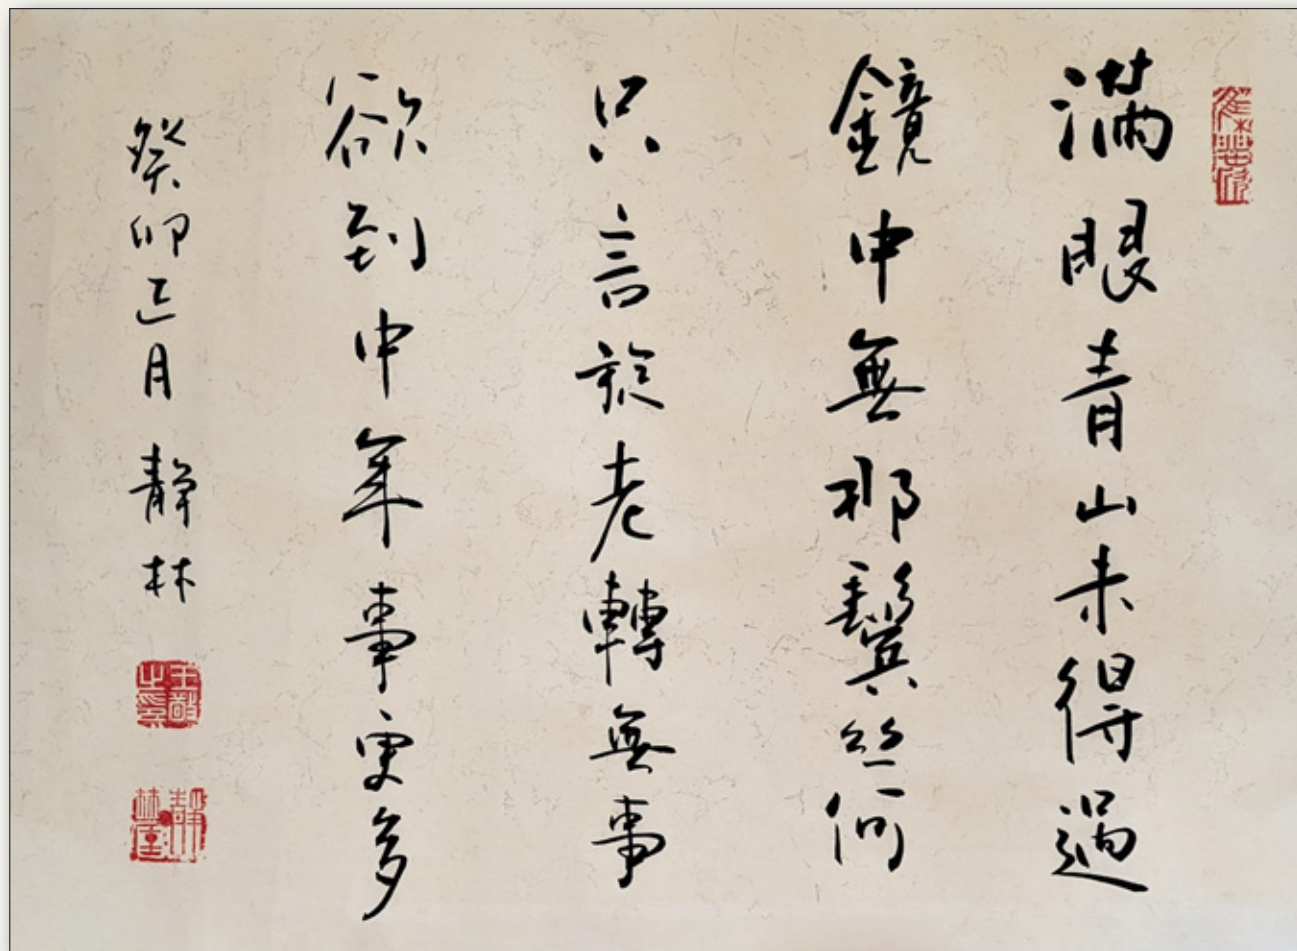 滿眼青山未得過
鏡中無那鬢絲何
只言旋老轉無事
欲到中年事更多
癸卯正月 靜林